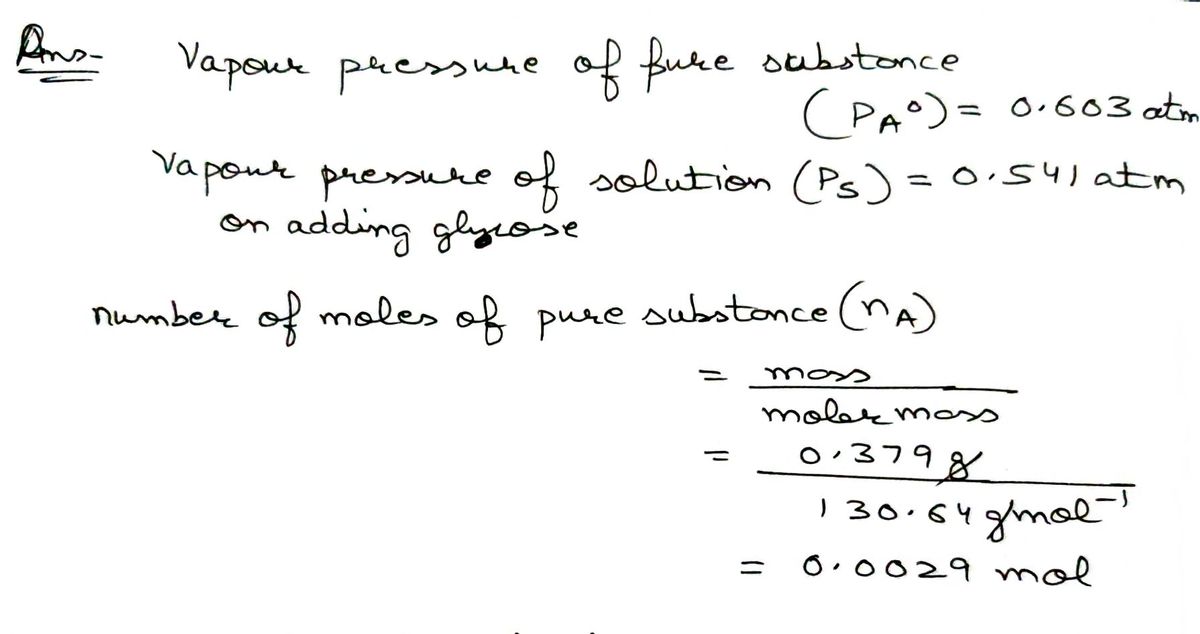 Ans- Vapour pressure of pure substance
(PA°) = 0.603 atm
Vapour pressure of solution (Ps) = 0.541 atm
on adding glycose
number of moles of pure substance (nA)
= mass
molar mass
= 0.379 g
130.64 gmol⁻¹
= 0.0029 mol